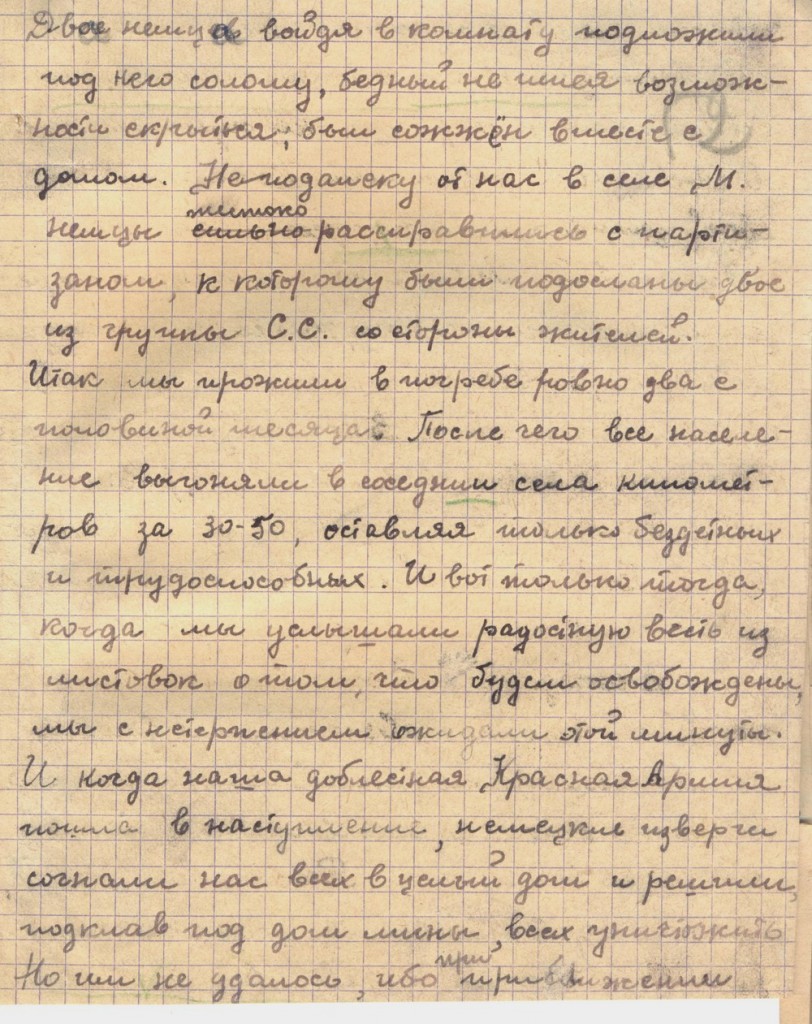 Двое немцев войдя в комнату подложили
под него солому, бедный не имея возмож-
ности скрыться, был сожжён вместе с
домом. Неподалеку от нас в селе М.
жестоко
немцы сильно расправились с парти-
заном, к которому были подосланы двое
из группы С.С. со стороны жителей.
Итак мы прожили в погребе ровно два с
половиной месяца. После чего все населе-
ние выгоняли в соседнии села километ-
ров за 30-50, оставляя только бездетных
и трудоспособных. И вот только тогда,
когда мы услышали радостную весть из
листовок о том, что будем освобождены,
мы с нетерпением ожидали этой минуты.
И когда наша доблестная Красная Армия
пошла в наступление, немецкие изверги
согнали нас всех в целый дом и решили,
подклав под дом мины, всех уничтожить
при
Но им не удалось, ибо приближении
2